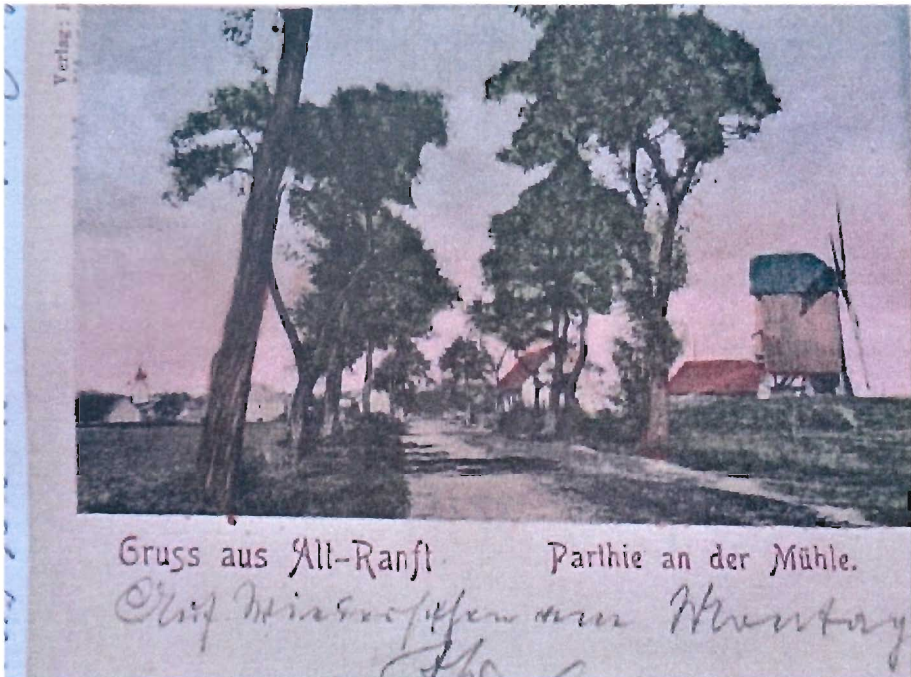 Verlag:
Gruss aus Alt-Ranft
Parthie an der Mühle.
Auf Wiedersehen am Montag